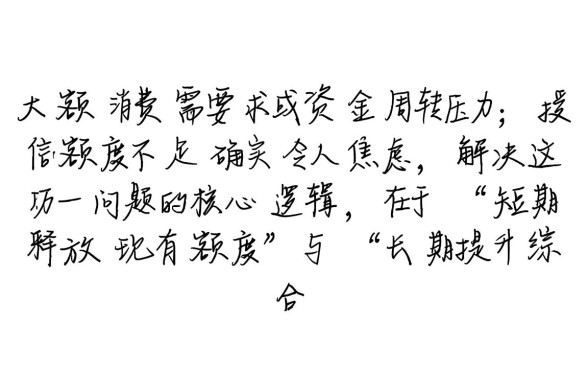 大额消费需要求或资金周转压力；授
信额度不足确实令人焦虑，解决这
历一问题的核心逻辑，在于“短期
释放现有额度”与“长期提升综
合